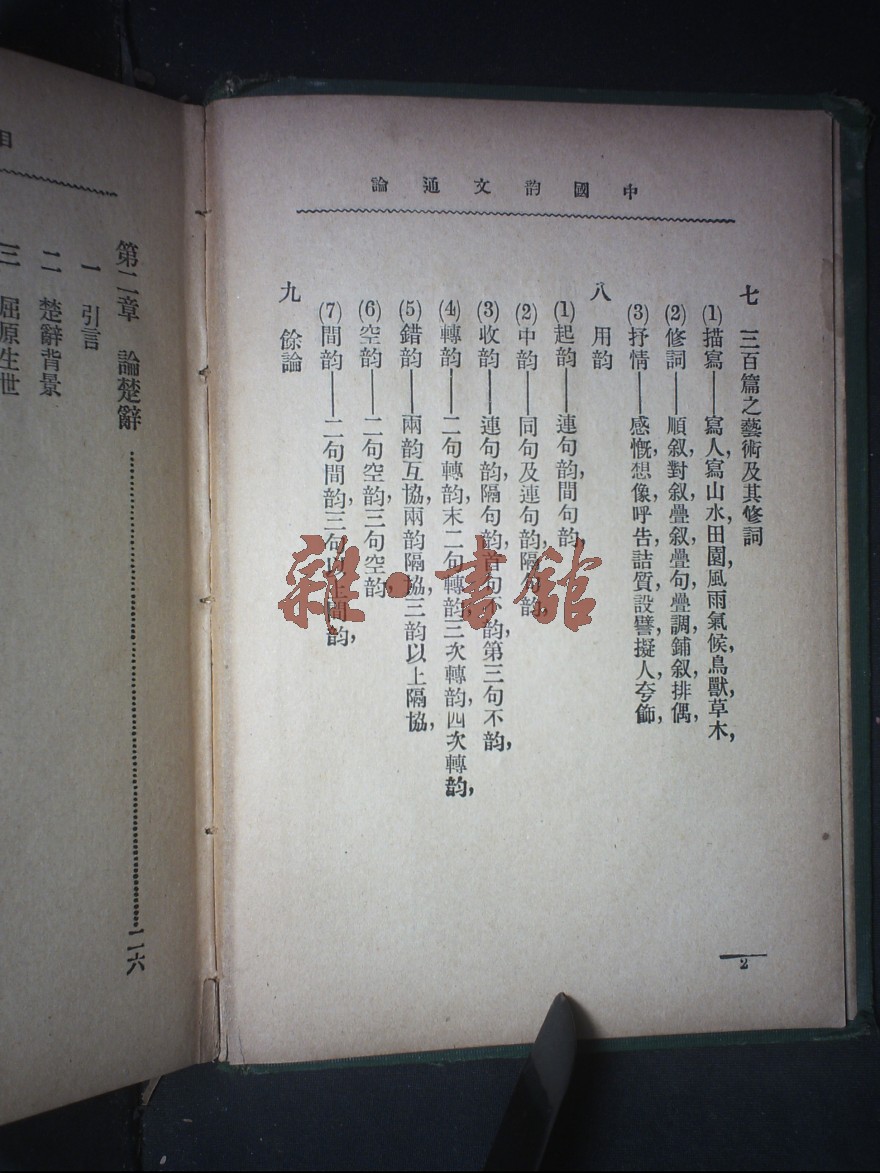 中國韵文通論
七　三百篇之藝術及其修詞
(1)描寫——寫人,寫山水,田園,風雨,氣候,鳥獸,草木,
(2)修詞——順叙,對叙,疊叙,疊句,疊調,鋪叙,排偶,
(3)抒情——感慨,想像,呼告,詰質,設譬,擬人,夸飾,
八　用韵
(1)起韵——連句韵,間句韵,
(2)中韵——同句及連句韵,隔句韵,
(3)收韵——連句韵,隔句韵,首句不韵,第三句不韵,
(4)轉韵——二句轉韵,末二句轉韵,三次轉韵,四次轉韵,
(5)錯韵——兩韵互協,兩韵隔協,三韵以上隔協,
(6)空韵——二句空韵,三句空韵,
(7)間韵——二句間韵,三句以上間韵,
九　餘論
2
目
第二章　論楚辭……二六
一　引言
二　楚辭背景
三　屈原生世
雜·書館